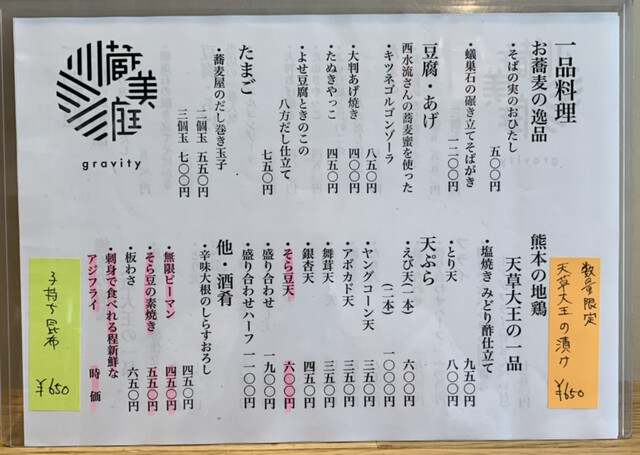 一品料理
お蕎麦の逸品
・そばの実のおひたし
五〇〇円
・蟻巣石の碾き立てそばがき
一二〇〇円
豆腐・あげ
西水流さんの蕎麦蜜を使った
・キツネゴルゴンゾーラ
八五〇円
・大判あげ焼き
四〇〇円
・たぬきやっこ
四五〇円
・よせ豆腐ときのこの
八方だし仕立て
七五〇円
たまご
・蕎麦屋のだし巻き玉子
二個玉 五五〇円
三個玉 七〇〇円
蔵美庭
gravity
熊本の地鶏
天草大王の一品
・塩焼き みどり酢仕立て
九五〇円
・とり天
八〇〇円
天ぷら
・えび天(一本)
六〇〇円
(二本)
一〇〇〇円
・ヤングコーン天
三五〇円
・アボカド天
三五〇円
・舞茸天
三五〇円
・銀杏天
四五〇円
・そら豆天
六〇〇円
・盛り合わせ
一九〇〇円
・盛り合わせハーフ
一一〇〇円
他・酒肴
・辛味大根のしらすおろし
四五〇円
・無限ピーマン
四五〇円
・そら豆の素焼き
五五〇円
・板わさ
六五〇円
・刺身で食べれる程新鮮な
アジフライ
時 価
数量限定
天草大王の漬け
¥650
子持ち昆布
¥650